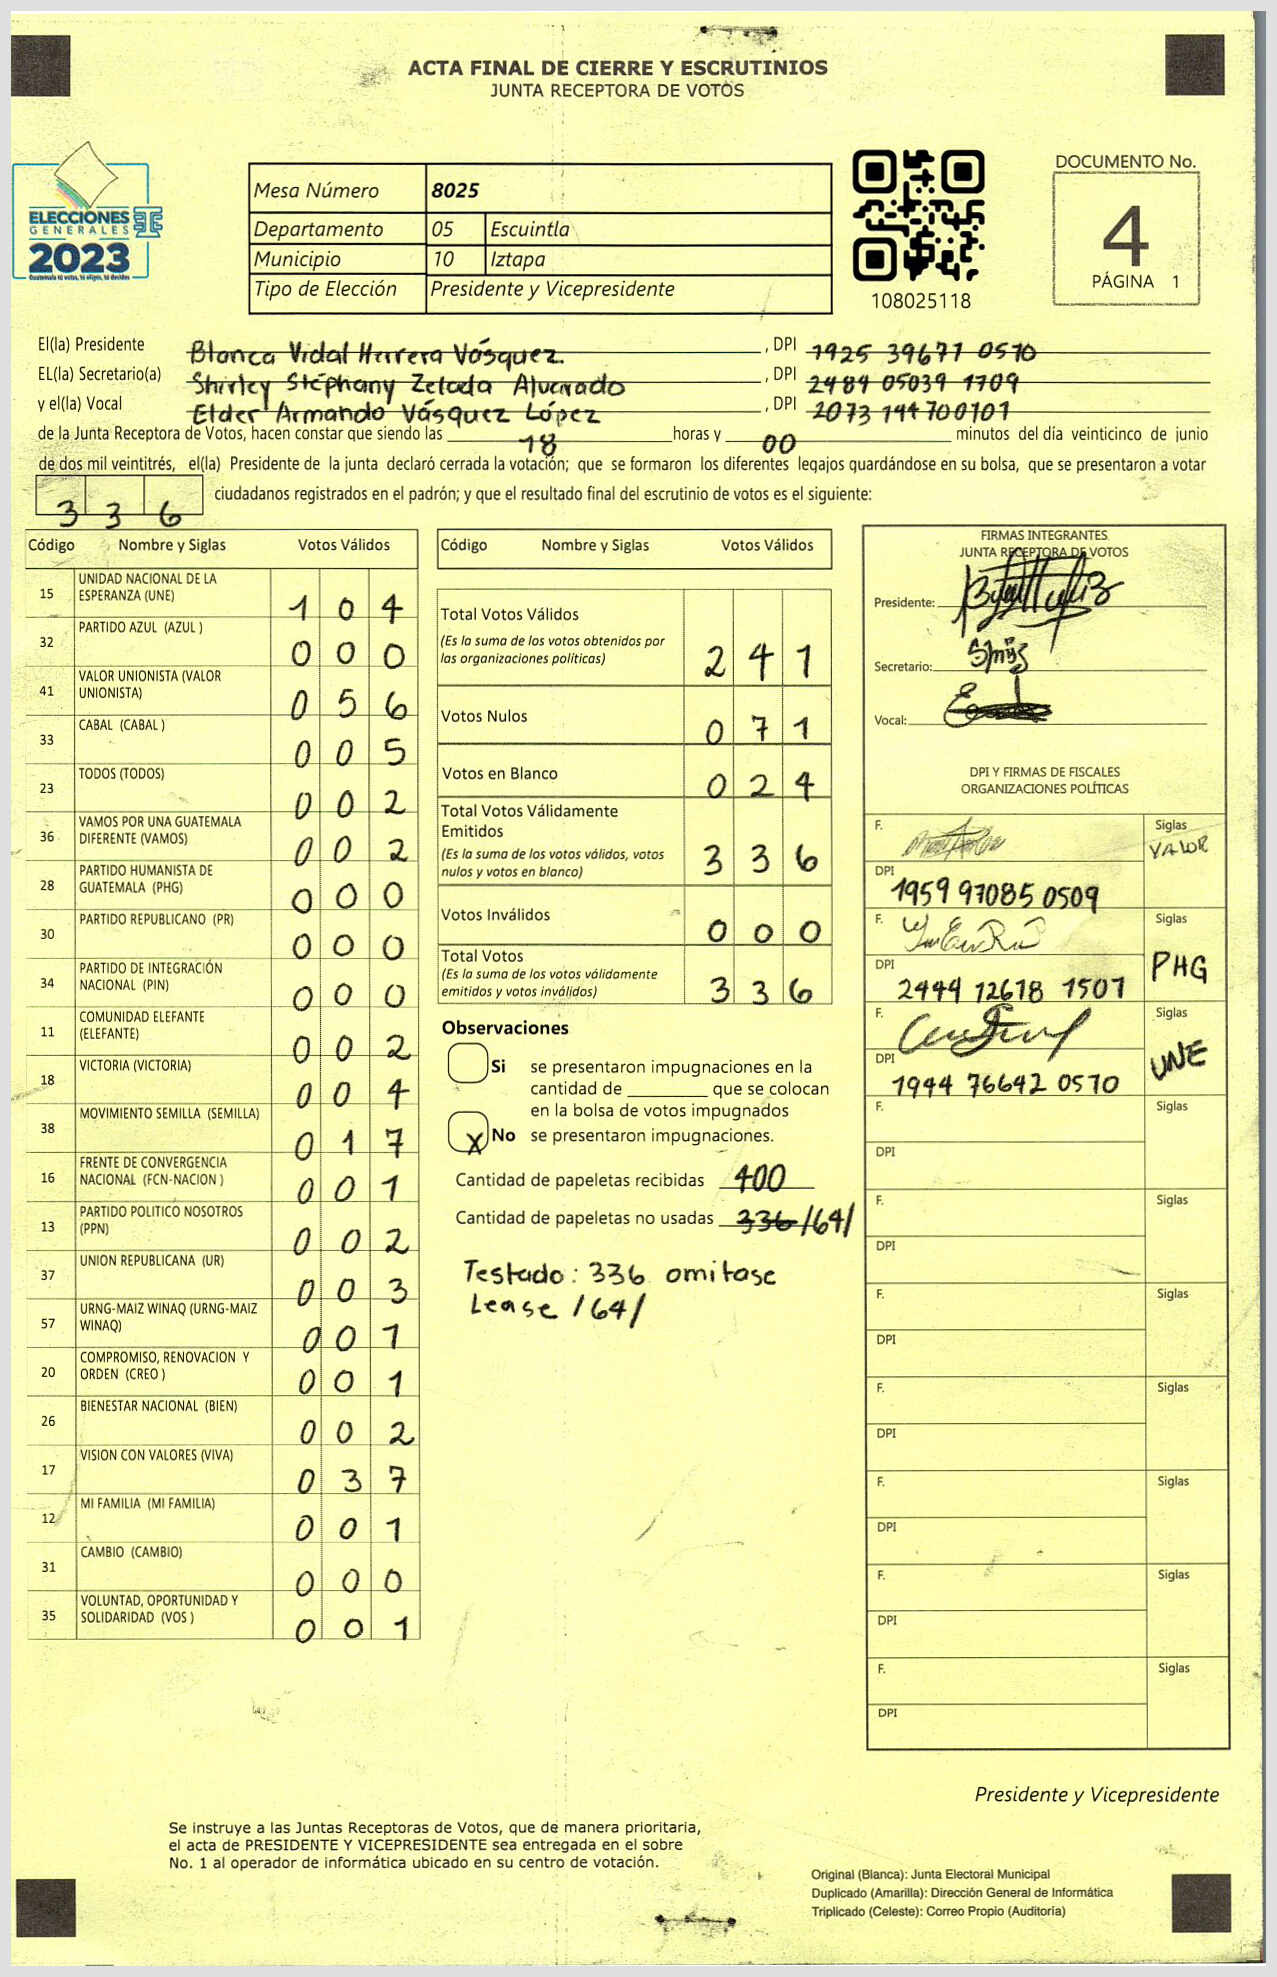 ACTA FINAL DE CIERRE Y ESCRUTINIOS
JUNTA RECEPTORA DE VOTOS
ELECCIONES
GENERALES
2023
Guatemala tú votas, tú eliges, tú decides
Mesa Número 8025
Departamento 05 Escuintla
Municipio 10 Iztapa
Tipo de Elección Presidente y Vicepresidente
108025118
DOCUMENTO No.
4
PÁGINA 1
El(la) Presidente Blanca Vidal Herrera Vásquez. , DPI 1925 39671 0510
EL(la) Secretario(a) Shirley Stéphany Zelada Alvarado , DPI 2484 05039 1709
y el(la) Vocal Elder Armando Vásquez López , DPI 2073 144700101
de la Junta Receptora de Votos, hacen constar que siendo las 18 horas y 00 minutos del día veinticinco de junio
de dos mil veintitrés, el(la) Presidente de la junta declaró cerrada la votación; que se formaron los diferentes legajos guardándose en su bolsa, que se presentaron a votar
336 ciudadanos registrados en el padrón; y que el resultado final del escrutinio de votos es el siguiente:
Código Nombre y Siglas Votos Válidos
15 UNIDAD NACIONAL DE LA
ESPERANZA (UNE) 1 0 4
32 PARTIDO AZUL (AZUL ) 0 0 0
41 VALOR UNIONISTA (VALOR
UNIONISTA) 0 5 6
33 CABAL (CABAL ) 0 0 5
23 TODOS (TODOS) 0 0 2
36 VAMOS POR UNA GUATEMALA
DIFERENTE (VAMOS) 0 0 2
28 PARTIDO HUMANISTA DE
GUATEMALA (PHG) 0 0 0
30 PARTIDO REPUBLICANO (PR) 0 0 0
34 PARTIDO DE INTEGRACIÓN
NACIONAL (PIN) 0 0 0
11 COMUNIDAD ELEFANTE
(ELEFANTE) 0 0 2
18 VICTORIA (VICTORIA) 0 0 4
38 MOVIMIENTO SEMILLA (SEMILLA) 0 1 7
16 FRENTE DE CONVERGENCIA
NACIONAL (FCN-NACION ) 0 0 1
13 PARTIDO POLITICO NOSOTROS
(PPN) 0 0 2
37 UNION REPUBLICANA (UR) 0 0 3
57 URNG-MAIZ WINAQ (URNG-MAIZ
WINAQ) 0 0 1
20 COMPROMISO, RENOVACION Y
ORDEN (CREO ) 0 0 1
26 BIENESTAR NACIONAL (BIEN) 0 0 2
17 VISION CON VALORES (VIVA) 0 3 7
12 MI FAMILIA (MI FAMILIA) 0 0 1
31 CAMBIO (CAMBIO) 0 0 0
35 VOLUNTAD, OPORTUNIDAD Y
SOLIDARIDAD (VOS ) 0 0 1
Código Nombre y Siglas Votos Válidos
Total Votos Válidos
(Es la suma de los votos obtenidos por
las organizaciones políticas) 2 4 1
Votos Nulos 0 7 1
Votos en Blanco 0 2 4
Total Votos Válidamente
Emitidos
(Es la suma de los votos válidos, votos
nulos y votos en blanco) 3 3 6
Votos Inválidos 0 0 0
Total Votos
(Es la suma de los votos válidamente
emitidos y votos inválidos) 3 3 6
Observaciones
Si se presentaron impugnaciones en la
cantidad de ________ que se colocan
en la bolsa de votos impugnados
X No se presentaron impugnaciones.
Cantidad de papeletas recibidas 400
Cantidad de papeletas no usadas 336 /64/
Testado: 336 omitase
Lease /64/
FIRMAS INTEGRANTES
JUNTA RECEPTORA DE VOTOS
Presidente:
Secretario:
Vocal:
DPI Y FIRMAS DE FISCALES
ORGANIZACIONES POLÍTICAS
F. Siglas
VALOR
DPI
1959 97085 0509
F. Siglas
PHG
DPI
2444 12618 1507
F. Siglas
UNE
DPI
1944 76642 0510
F. Siglas
DPI
F. Siglas
DPI
F. Siglas
DPI
F. Siglas
DPI
F. Siglas
DPI
F. Siglas
DPI
F. Siglas
DPI
Presidente y Vicepresidente
Se instruye a las Juntas Receptoras de Votos, que de manera prioritaria,
el acta de PRESIDENTE Y VICEPRESIDENTE sea entregada en el sobre
No. 1 al operador de informática ubicado en su centro de votación.
Original (Blanca): Junta Electoral Municipal
Duplicado (Amarilla): Dirección General de Informática
Triplicado (Celeste): Correo Propio (Auditoría)